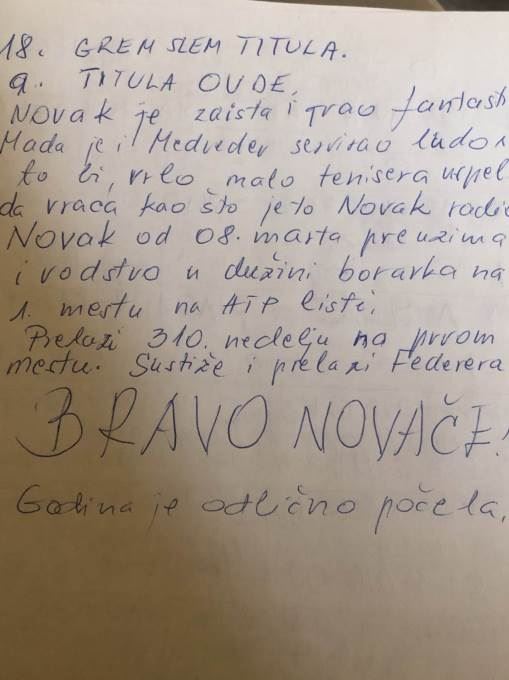 18. GREM SLEM TITULA.
9. TITULA OVDE.
NOVAK je zaista igrao fantasti
Mada je i Medvedev servirao ludo n
to bi, vrlo malo tenisera uspel
da vraća kao što je to Novak radi
NOVAK od 08. marta preuzima
i vodstvo u dužini boravka na
1. mestu na ATP listi.
Prelazi 310. nedelju na prvom
mestu. Sustiže i prelazi Federera
BRAVO NOVAČE!
Godina je odlično počela.